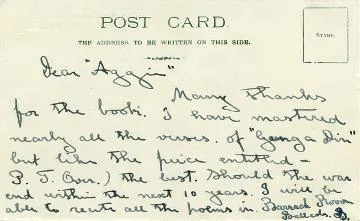 POST CARD.
THE ADDRESS TO BE WRITTEN ON THIS SIDE.
STAMP.
Dear "Aggie"
Many thanks
for the book. I have mastered
nearly all the verses of "Gunga Din"
but like the piece entitled —
P. T. Over.) the best. Should the war
end within the next 10 years. I will be
able to recite all the poems in Barrack Room
Ballads.